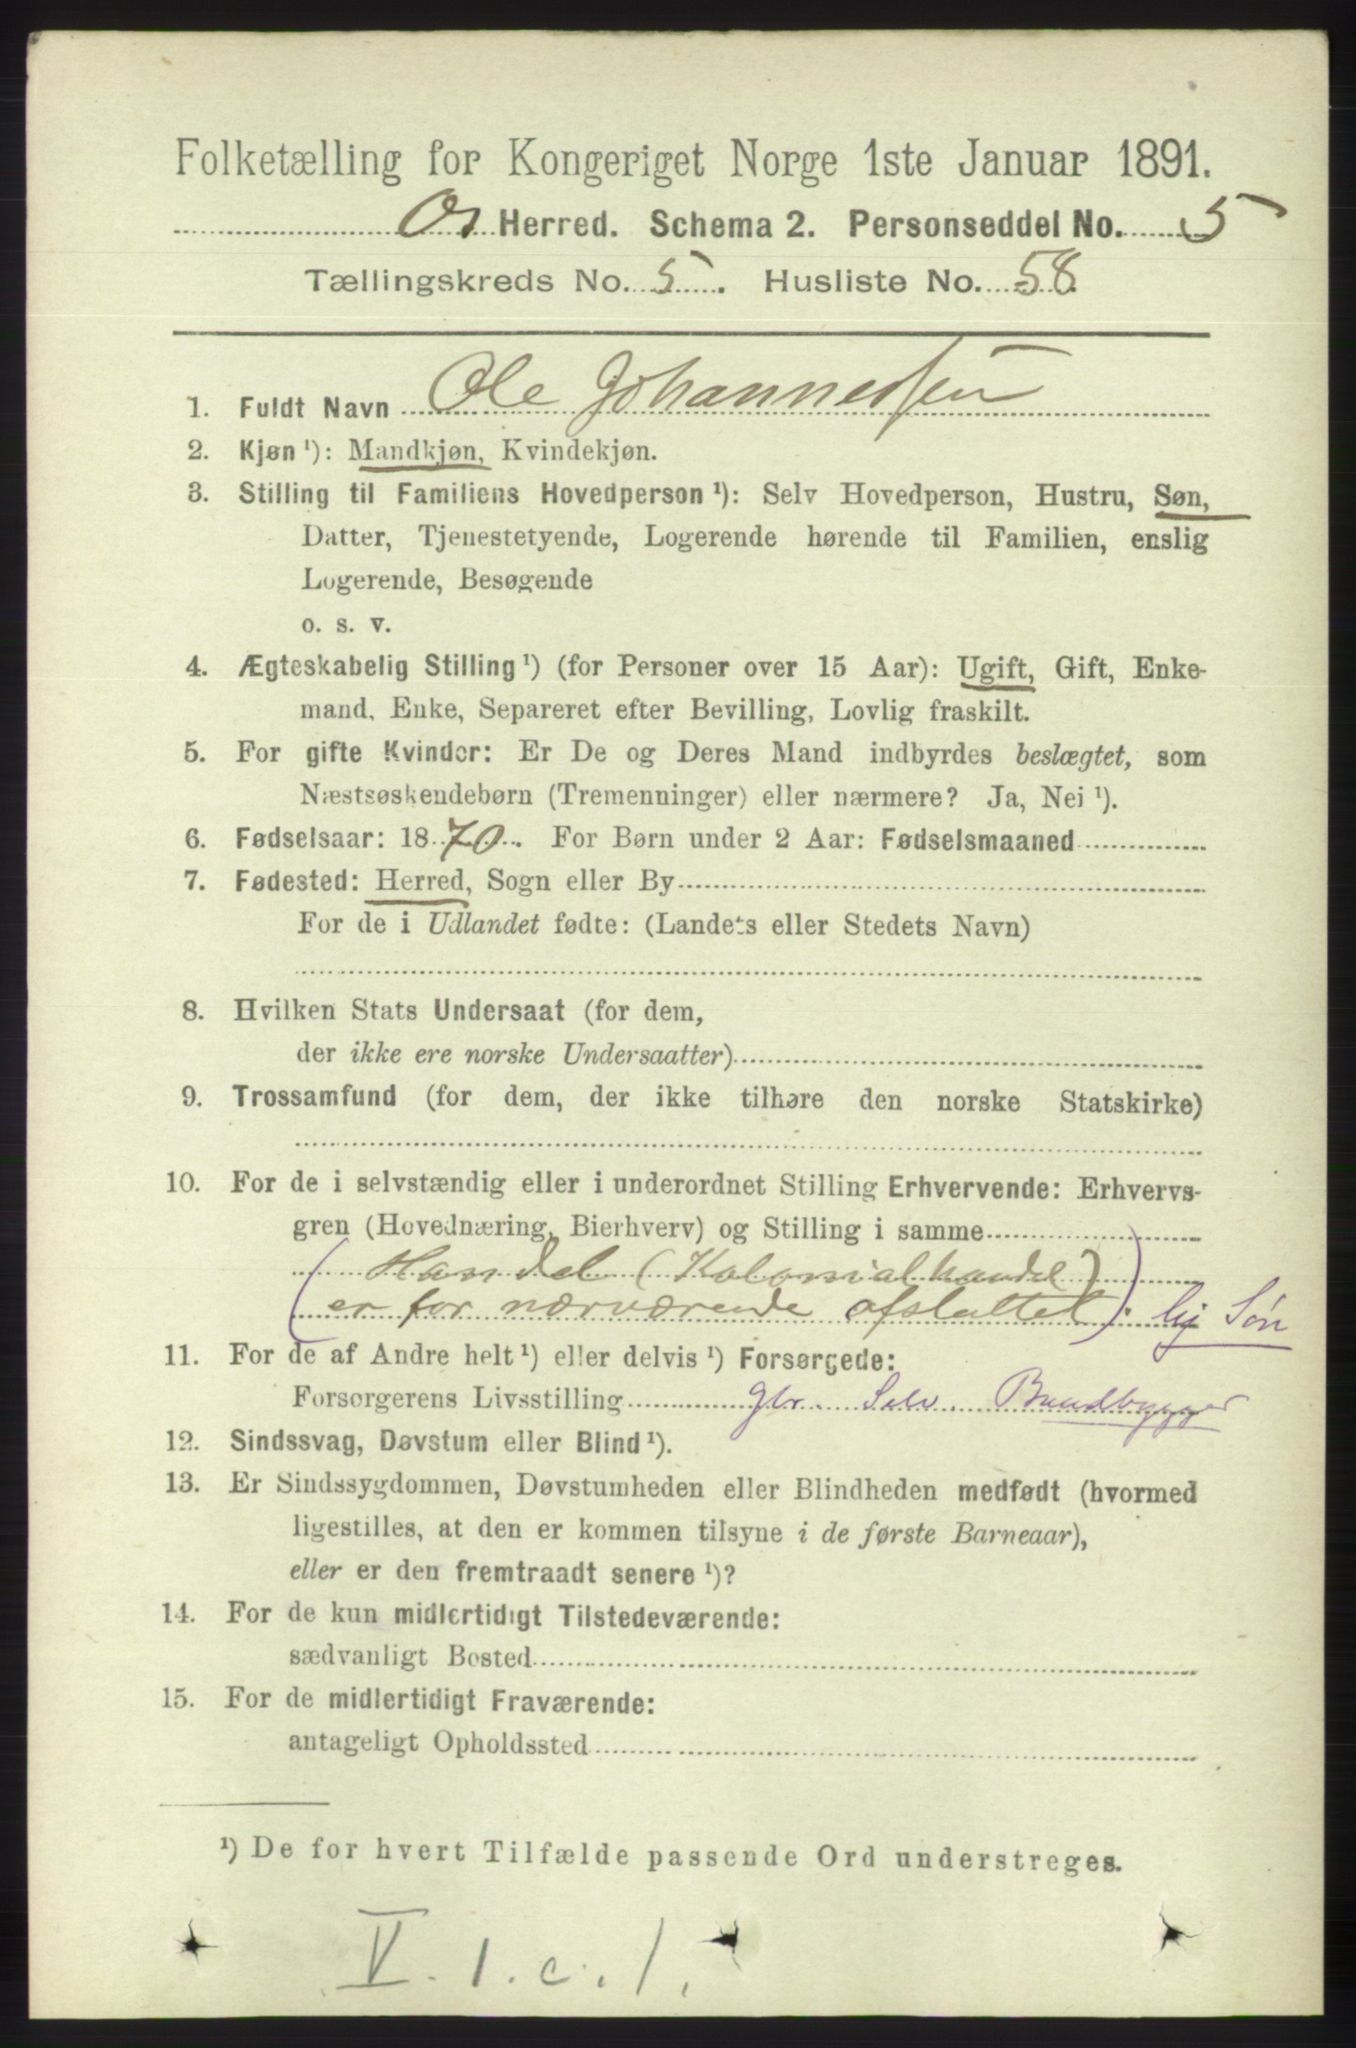 Folketælling for Kongeriget Norge 1ste Januar 1891.
Os Herred. Schema 2. Personseddel No. 5
Tællingskreds No. 5. Husliste No. 58
1. Fuldt Navn Ole Johannessen
2. Kjøn ¹): Mandkjøn, Kvindekjøn.
3. Stilling til Familiens Hovedperson ¹): Selv Hovedperson, Hustru, Søn,
Datter, Tjenestetyende, Logerende hørende til Familien, enslig
Logerende, Besøgende
o. s. v.
4. Ægteskabelig Stilling ¹) (for Personer over 15 Aar): Ugift, Gift, Enke-
mand, Enke, Separeret efter Bevilling, Lovlig fraskilt.
5. For gifte Kvinder: Er De og Deres Mand indbyrdes beslægtet, som
Næstsøskendebørn (Tremenninger) eller nærmere? Ja, Nei ¹).
6. Fødselsaar: 1870. For Børn under 2 Aar: Fødselsmaaned
7. Fødested: Herred, Sogn eller By
For de i Udlandet fødte: (Landets eller Stedets Navn)
8. Hvilken Stats Undersaat (for dem,
der ikke ere norske Undersaatter)
9. Trossamfund (for dem, der ikke tilhøre den norske Statskirke)
10. For de i selvstændig eller i underordnet Stilling Erhvervende: Erhvervs-
gren (Hovednæring, Bierhverv) og Stilling i samme
(Handel (Kolonialhandel)
er for nærværende afsluttet). Søn
11. For de af Andre helt ¹) eller delvis ¹) Forsørgede:
Forsørgerens Livsstilling Gbr. Selv.
12. Sindssvag, Døvstum eller Blind ¹).
13. Er Sindssygdommen, Døvstumheden eller Blindheden medfødt (hvormed
ligestilles, at den er kommen tilsyne i de første Barneaar),
eller er den fremtraadt senere ¹)?
14. For de kun midlertidigt Tilstedeværende:
sædvanligt Bosted
15. For de midlertidigt Fraværende:
antageligt Opholdssted
¹) De for hvert Tilfælde passende Ord understreges.
V. 1. c. 1.